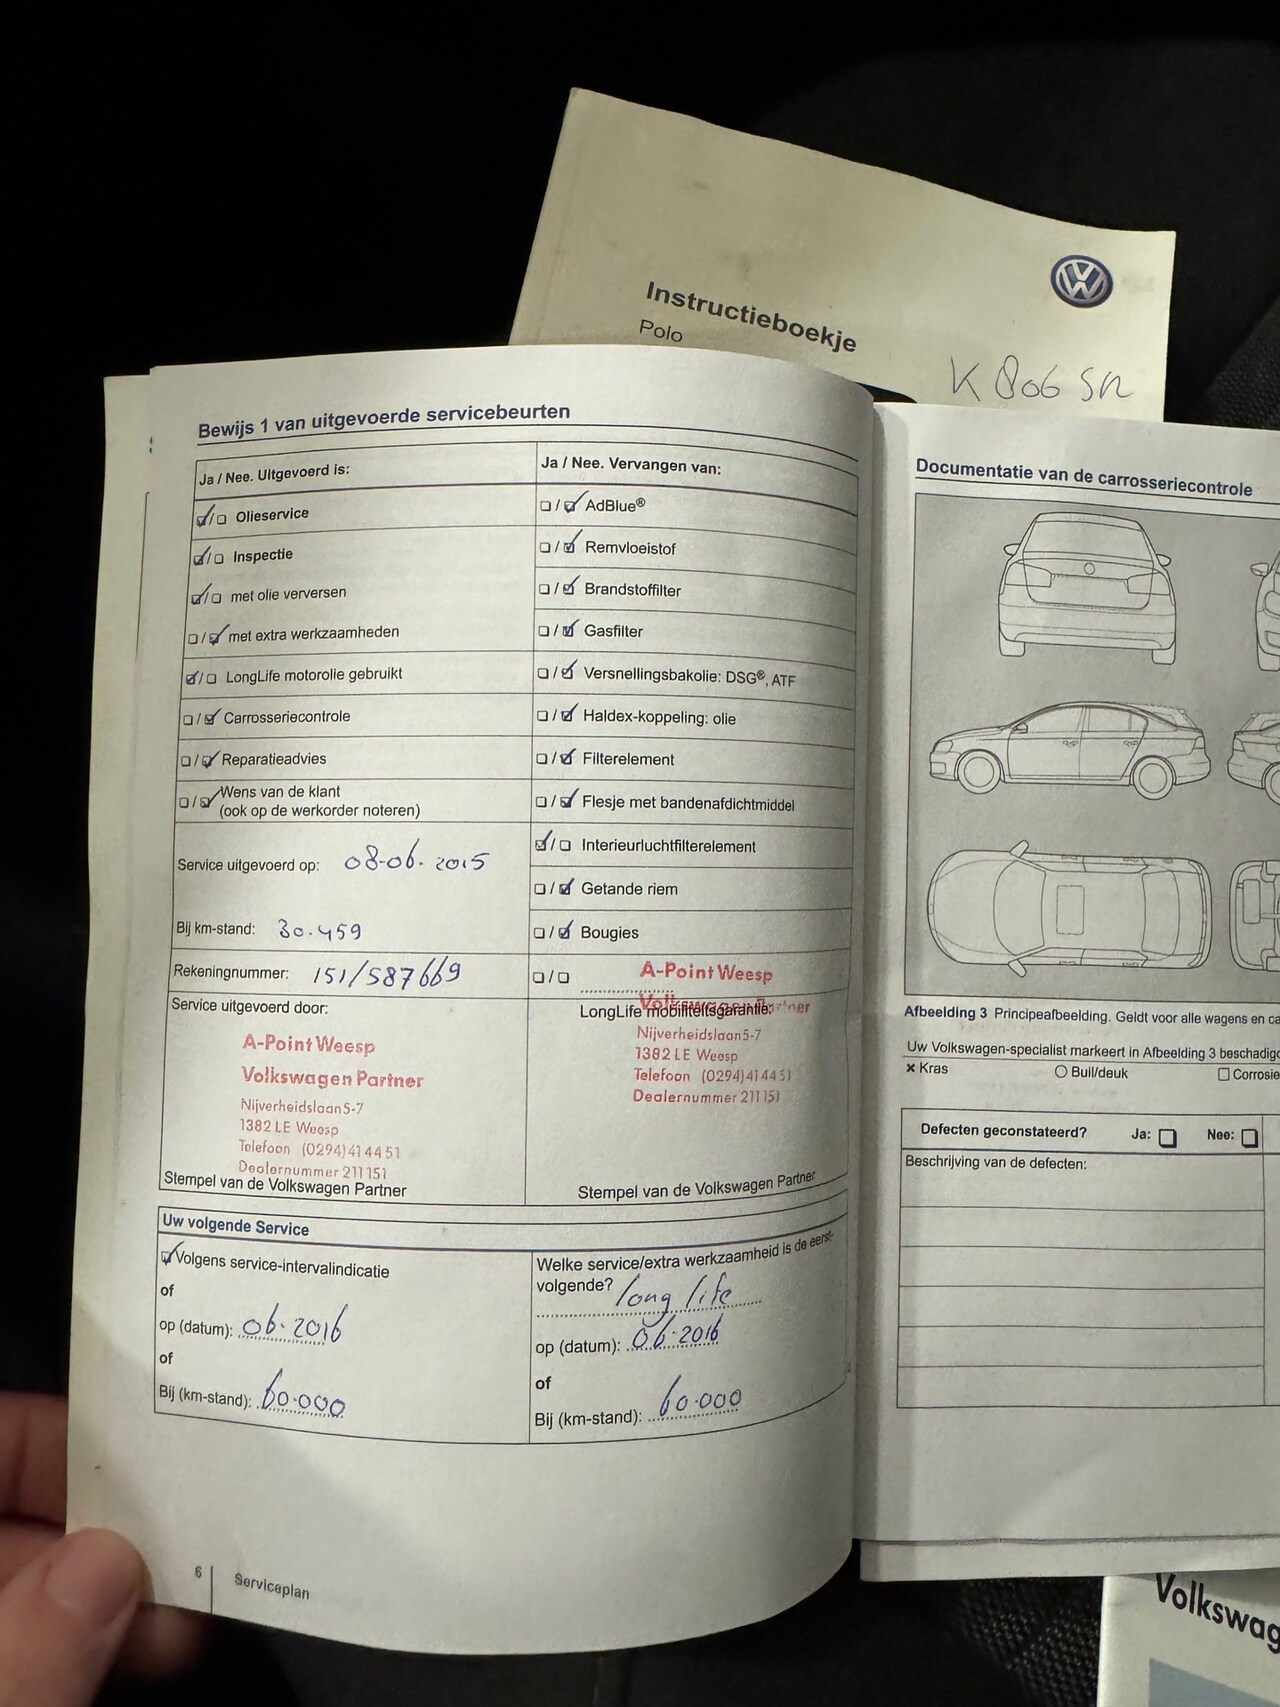 Instructieboekje
Polo
K 806 SR
Bewijs 1 van uitgevoerde servicebeurten
Ja / Nee. Uitgevoerd is:
Olieservice
Inspectie
met olie verversen
met extra werkzaamheden
LongLife motorolie gebruikt
Carrosseriecontrole
Reparatieadvies
Wens van de klant
(ook op de werkorder noteren)
Service uitgevoerd op: 08-06-2015
Bij km-stand: 30.459
Rekeningnummer: 151/587669
Service uitgevoerd door:
A-Point Weesp
Volkswagen Partner
Nijverheidslaan 5-7
1382 LE Weesp
Telefoon (0294) 41 44 51
Dealernummer 211151
Stempel van de Volkswagen Partner
Ja / Nee. Vervangen van:
AdBlue®
Remvloeistof
Brandstoffilter
Gasfilter
Versnellingsbakolie: DSG®, ATF
Haldex-koppeling: olie
Filterelement
Flesje met bandenafdichtmiddel
Interieurluchtfilterelement
Getande riem
Bougies
A-Point Weesp
Volkswagen Partner
LongLife mobiliteitsgarantie:
Nijverheidslaan 5-7
1382 LE Weesp
Telefoon (0294) 41 44 51
Dealernummer 211151
Stempel van de Volkswagen Partner
Uw volgende Service
Volgens service-intervalindicatie
of
op (datum): 06-2016
of
Bij (km-stand): 60.000
Welke service/extra werkzaamheid is de eerst-
volgende? long life
op (datum): 06-2016
of
Bij (km-stand): 60.000
6 Serviceplan
Documentatie van de carrosseriecontrole
Afbeelding 3 Principeafbeelding. Geldt voor alle wagens en ca
Uw Volkswagen-specialist markeert in Afbeelding 3 beschadig
× Kras Buil/deuk Corrosie
Defecten geconstateerd? Ja: Nee:
Beschrijving van de defecten:
Volkswag